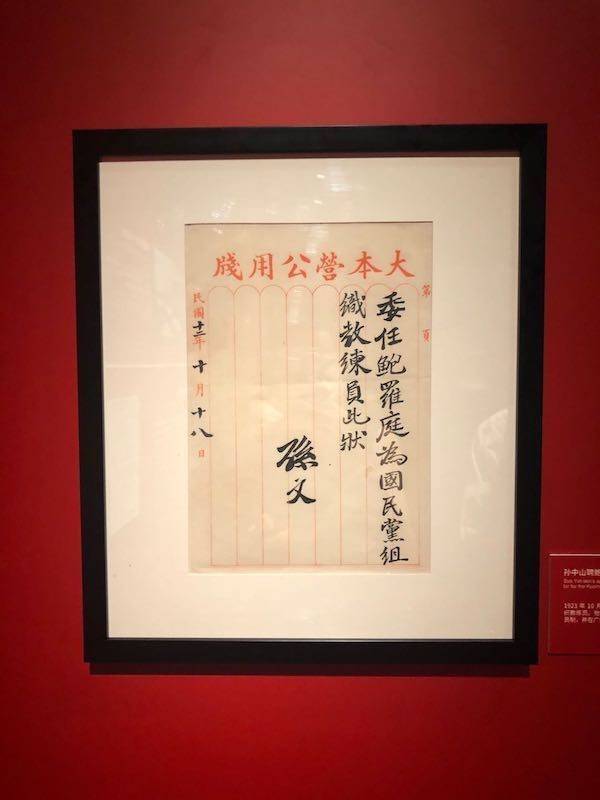 大本營公用牋
第 頁
委任鮑羅庭為國民黨組
織教練員此狀
孫文
民國十二年十月十八日
孙中山聘
Sun Yat-sen's
for the
1923 年 10 月
织教练员。
员制，并在广